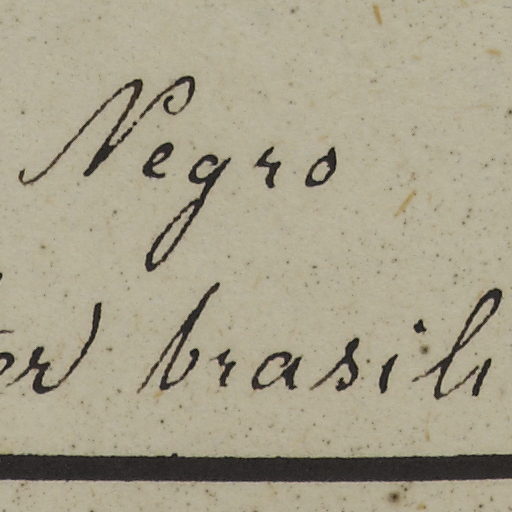 Negro
brasili